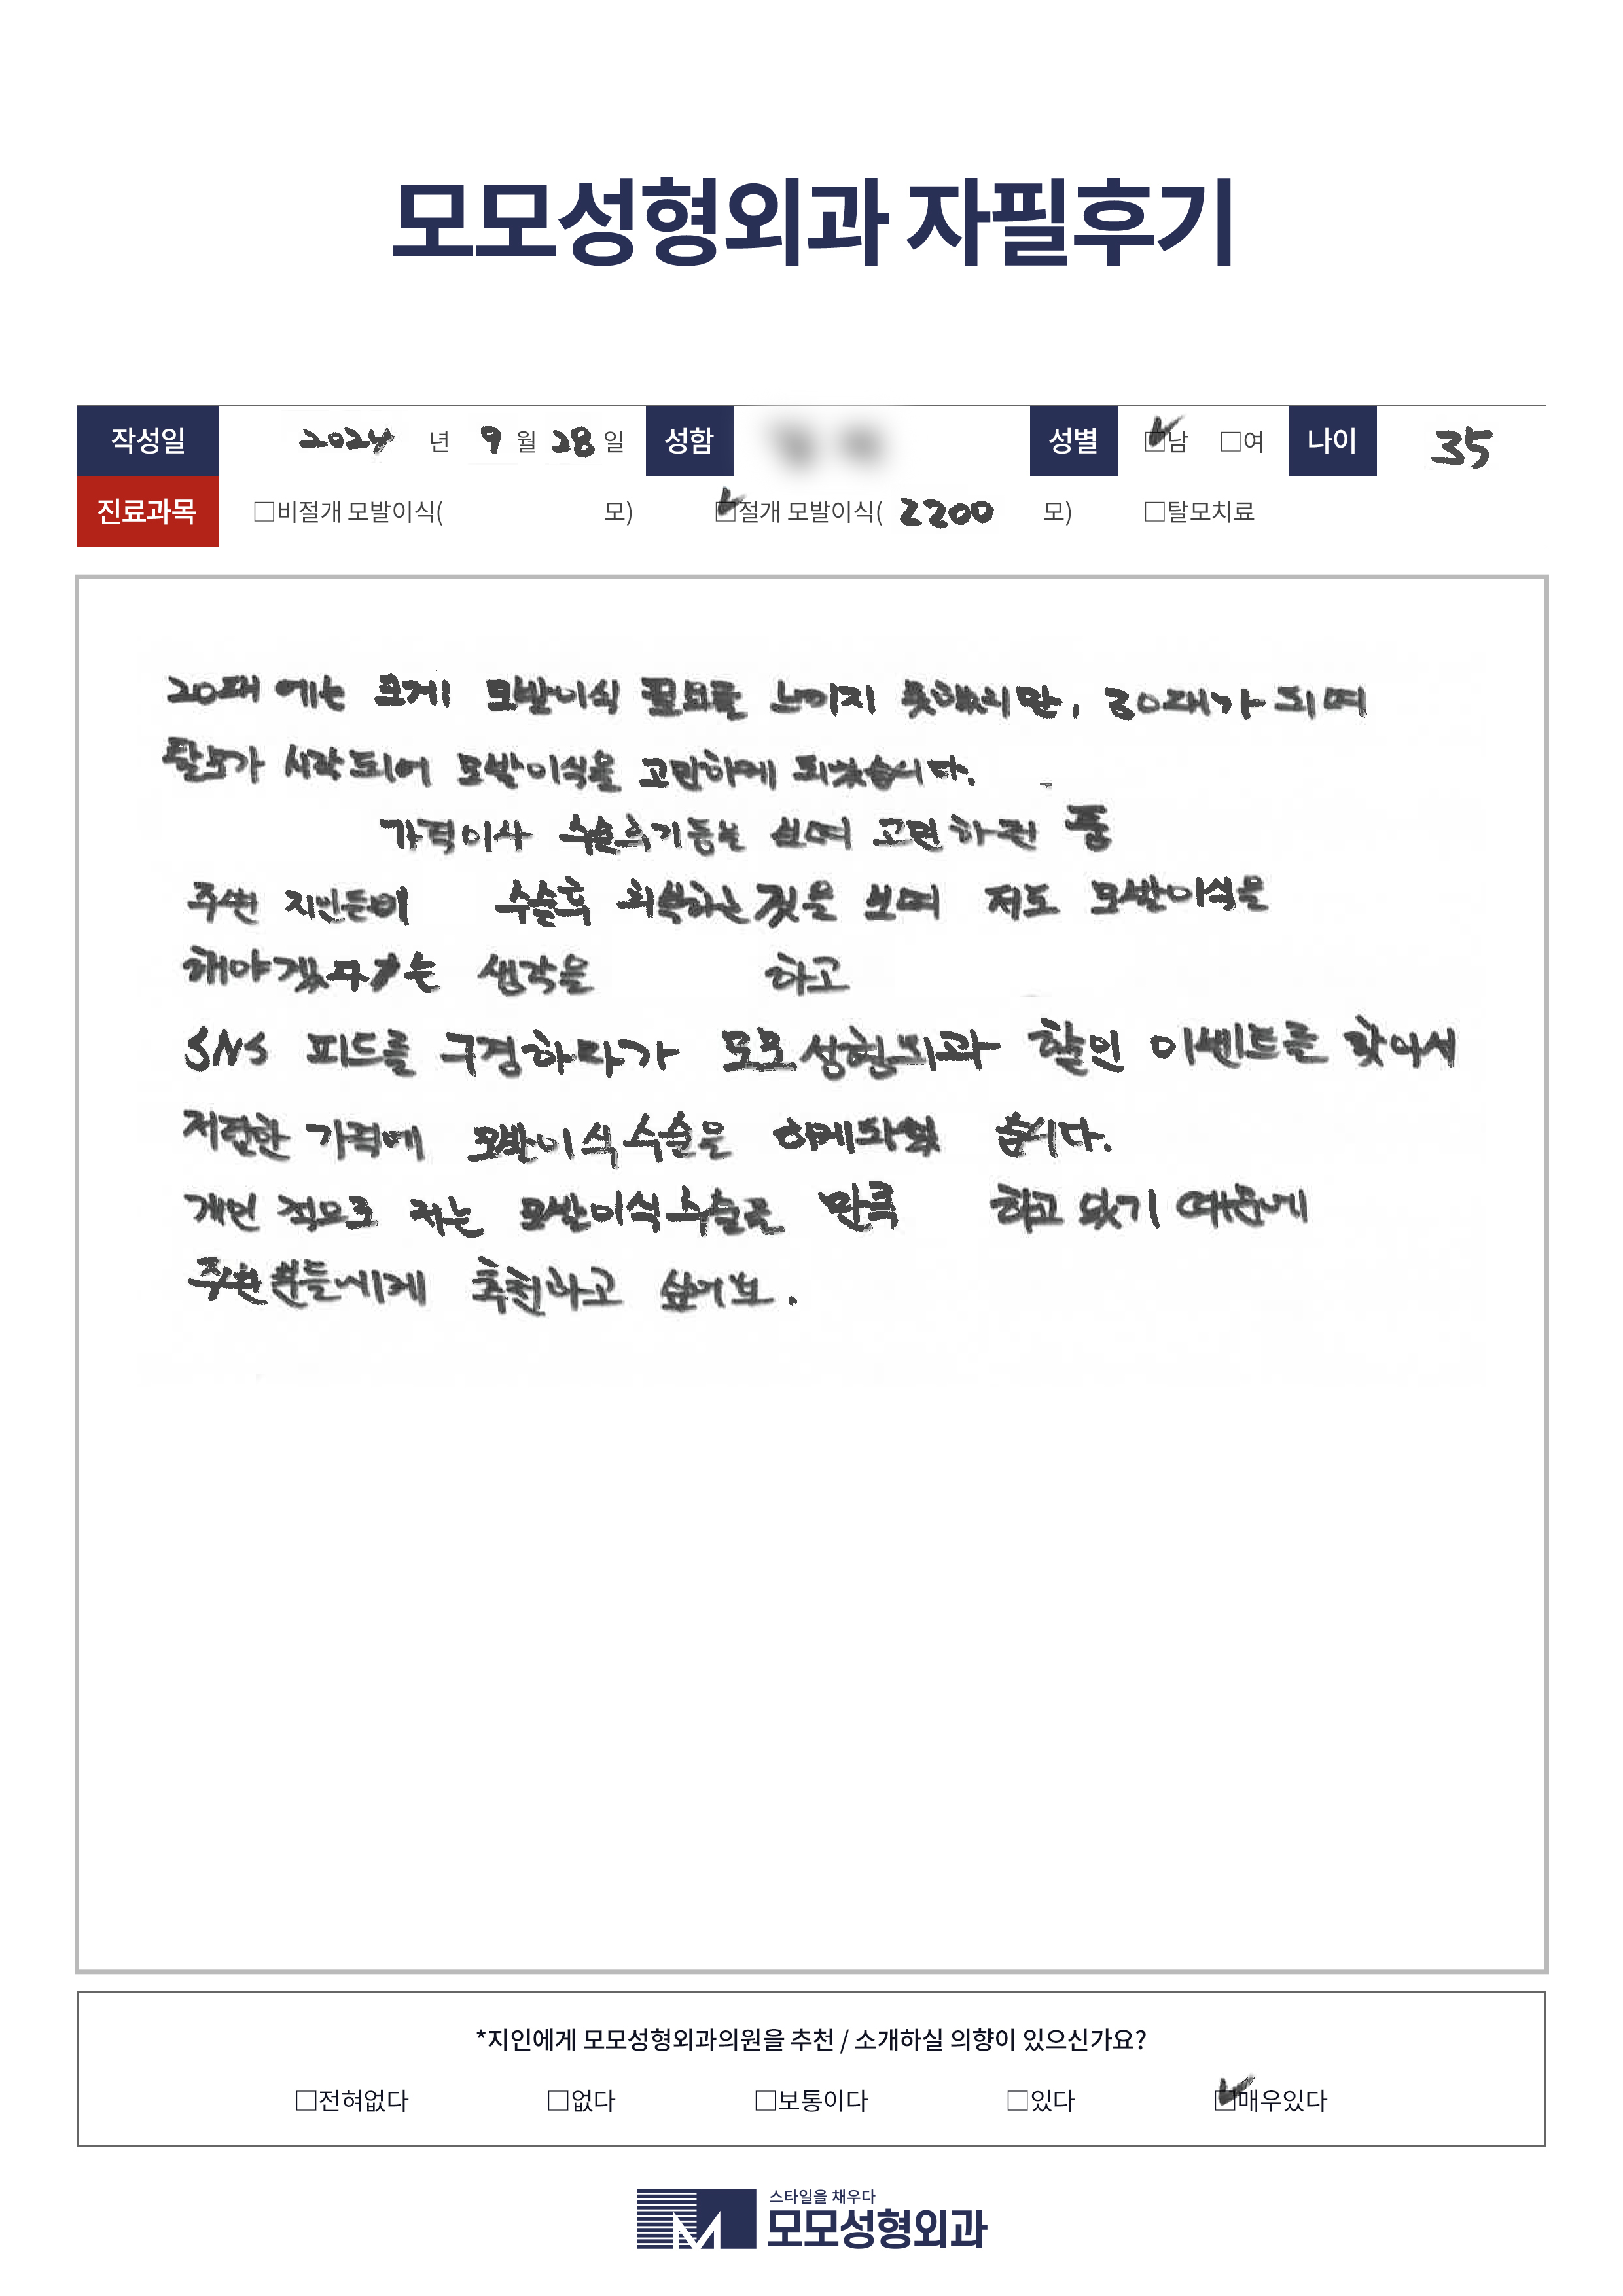 모모성형외과 자필후기
작성일 2024 년 9 월 28 일 성함 성별 ☑남 □여 나이 35
진료과목 □비절개 모발이식( 모) ☑절개 모발이식( 2200 모) □탈모치료
20대 에는 크게 모발이식 필요를 느끼지 못했지만, 30대가 되며
탈모가 시작되어 모발이식을 고민하게 되었습니다.
가격이사 수술후기등을 보며 고민하던 중
주변 지인들이 수술후 회복하는 것을 보며 저도 모발이식을
해야겠다는 생각을 하고
SNS 피드를 구경하다가 모모성형외과 할인 이벤트를 찾아서
저렴한 가격에 모발이식수술을 하게되었 습니다.
개인 적으로 저는 모발이식수술로 만족 하고 있기 때문에
주변 분들에게 추천하고 싶어요.
*지인에게 모모성형외과의원을 추천 / 소개하실 의향이 있으신가요?
□전혀없다 □없다 □보통이다 □있다 ☑매우있다
스타일을 채우다
모모성형외과